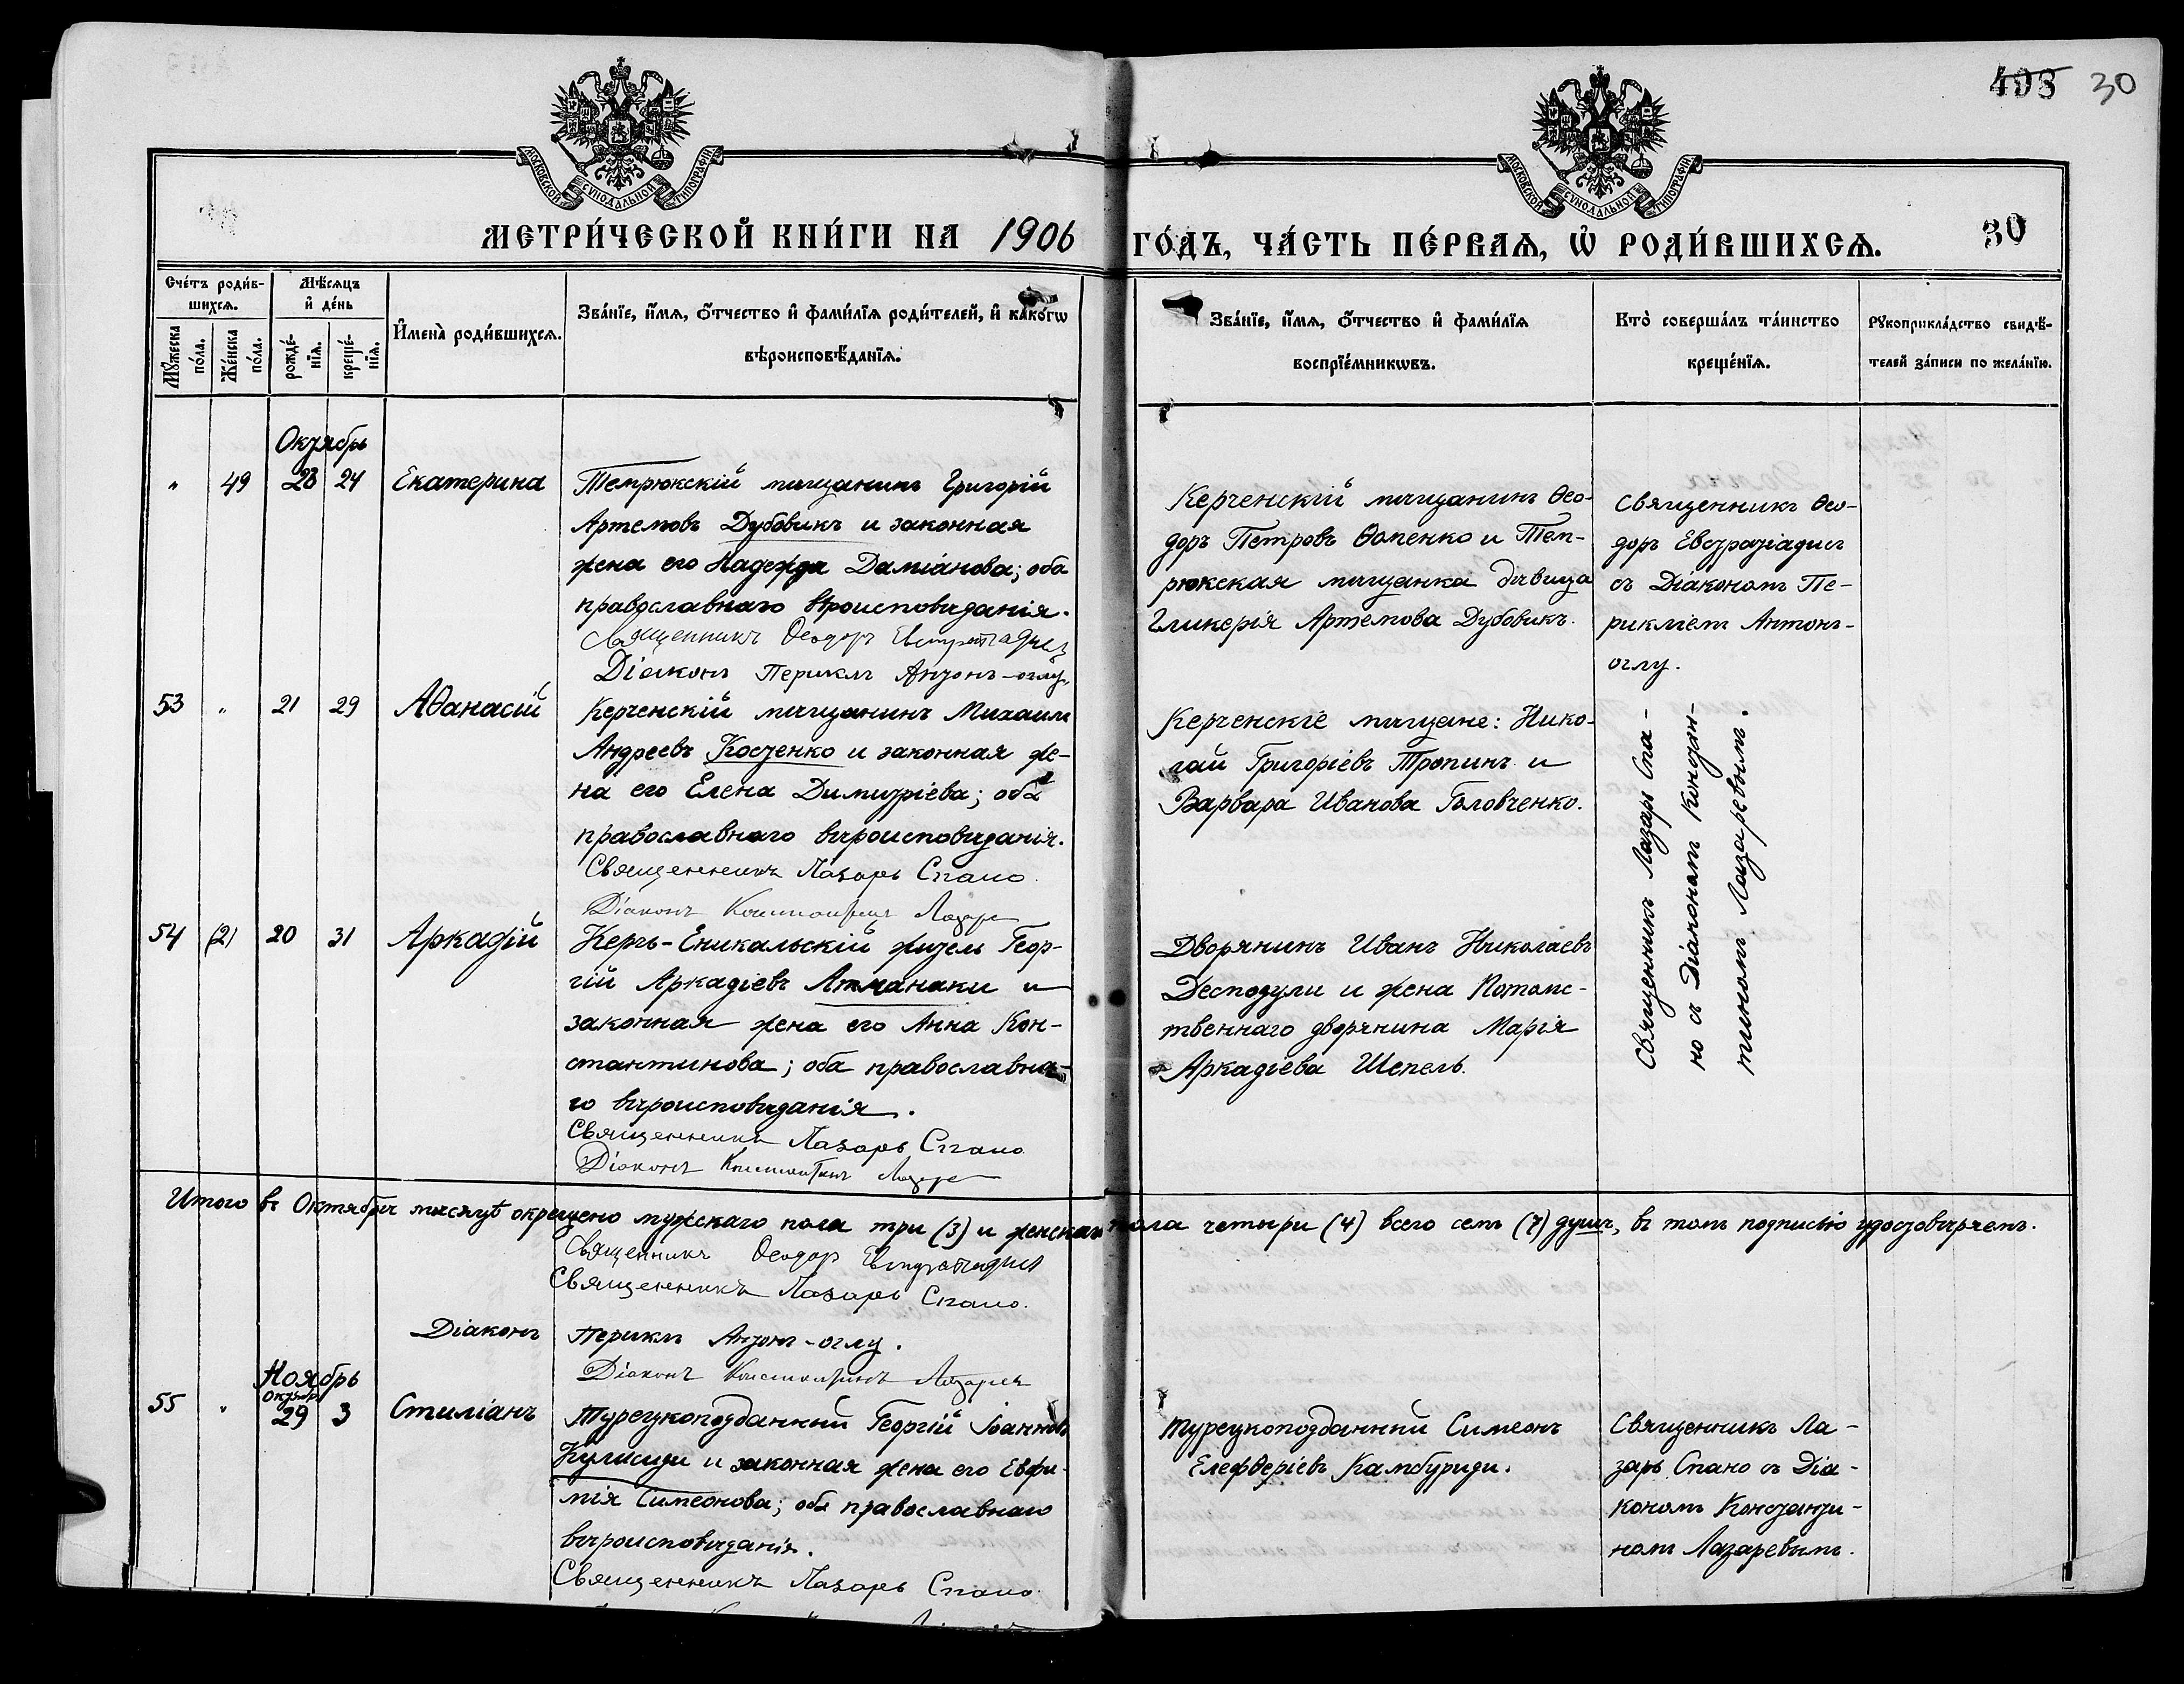 493 30
МОСКОВСКОЙ СУНОДАЛЬНОЙ ТИПОГРАФІИ
МОСКОВСКОЙ СУНОДАЛЬНОЙ ТИПОГРАФІИ
МЕТРИ́ЧЕСКОЙ КНИ́ГИ НА 1906 ГО́ДЪ, ЧА́СТЬ ПЕ́РВАѦ, Ѡ҆ РОДИ́ВШИХСѦ. 30
Сче́тъ роди́в-
шихсѧ.
Мꙋ́жеска
по́ла.
Же́нска
по́ла.
Мѣ́сѧцъ
и҆ де́нь
рожде́-
нїѧ.
креще́-
нїѧ.
И҆мена̀ роди́вшихсѧ.
Зва́нїе, и҆́мѧ, ѻ҆́тчество и҆ фами́лїѧ роди́телей, и҆ како́гѡ
вѣроисповѣ́данїѧ.
Зва́нїе, и҆́мѧ, ѻ҆́тчество и҆ фами́лїѧ
воспрїе́мникѡвъ.
Кто̀ соверша́лъ та́инство
креще́нїѧ.
Рꙋкоприкла́дство свидѣ́-
телей за́писи по жела́нїю.
Октябрь
" 49 23 24 Екатерина
Темрюкскій мѣщанинъ Григорій
Артемовъ Дубовикъ и законная
жена его Надежда Даміанова; оба
православнаго вѣроисповѣданія.
Священникъ Ѳеодоръ Евстратіадисъ
Діаконъ Периклъ Антонъ-оглу.
Керченскій мѣщанинъ Ѳео-
доръ Петровъ Ѳоменко и Тем-
рюкская мѣщанка дѣвица
Гликерія Артемова Дубовикъ.
Священникъ Ѳео-
доръ Евстратіадисъ
съ Діакономъ Пе-
рикліемъ Антонъ-
оглу.
53 " 21 29 Аѳанасій
Керченскій мѣщанинъ Михаилъ
Андреевъ Костенко и законная же-
на его Елена Димитріева; оба
православнаго вѣроисповѣданія.
Священникъ Лазарь Спано
Діаконъ Константинъ Лазаре
Керченскіе мѣщане: Нико-
лай Григоріевъ Тропинъ и
Варвара Иванова Головченко.
Священникъ Лазарь Спа-
но съ Діакономъ Констан-
тиномъ Лазаревымъ.
54 (2) 20 31 Аркадій
Керчь-Еникальскій житель Геор-
гій Аркадіевъ Атманаки и
законная жена его Анна Кон-
стантинова; оба православна-
го вѣроисповѣданія.
Священникъ Лазарь Спано
Діаконъ Константинъ Лазаре
Дворянинъ Иванъ Николаевъ
Десподули и жена Потомс-
твеннаго дворянина Марія
Аркадіева Шепель.
Итого въ Октябрѣ мѣсяцѣ окрещено мужскаго пола три (3) и женскаго пола четыри (4) всего семь (7) душъ, въ томъ подписью удостовѣряемъ.
Священникъ Ѳеодоръ Евстратіадисъ
Священникъ Лазарь Спано.
Діаконъ Периклъ Антонъ-оглу.
Діаконъ Константинъ Лазарев
Ноябрь
Октябр
55 " 29 3 Стиліанъ
Турецкоподданный Георгій Іоанновъ
Кулисиди и законная жена его Евфи-
мія Симеонова; оба православнаго
вѣроисповѣданія.
Священникъ Лазарь Спано
Турецкоподданный Симеонъ
Елефѳеріевъ Камбуриди.
Священникъ Ла-
зарь Спано съ Діа-
кономъ Константи-
номъ Лазаревымъ.